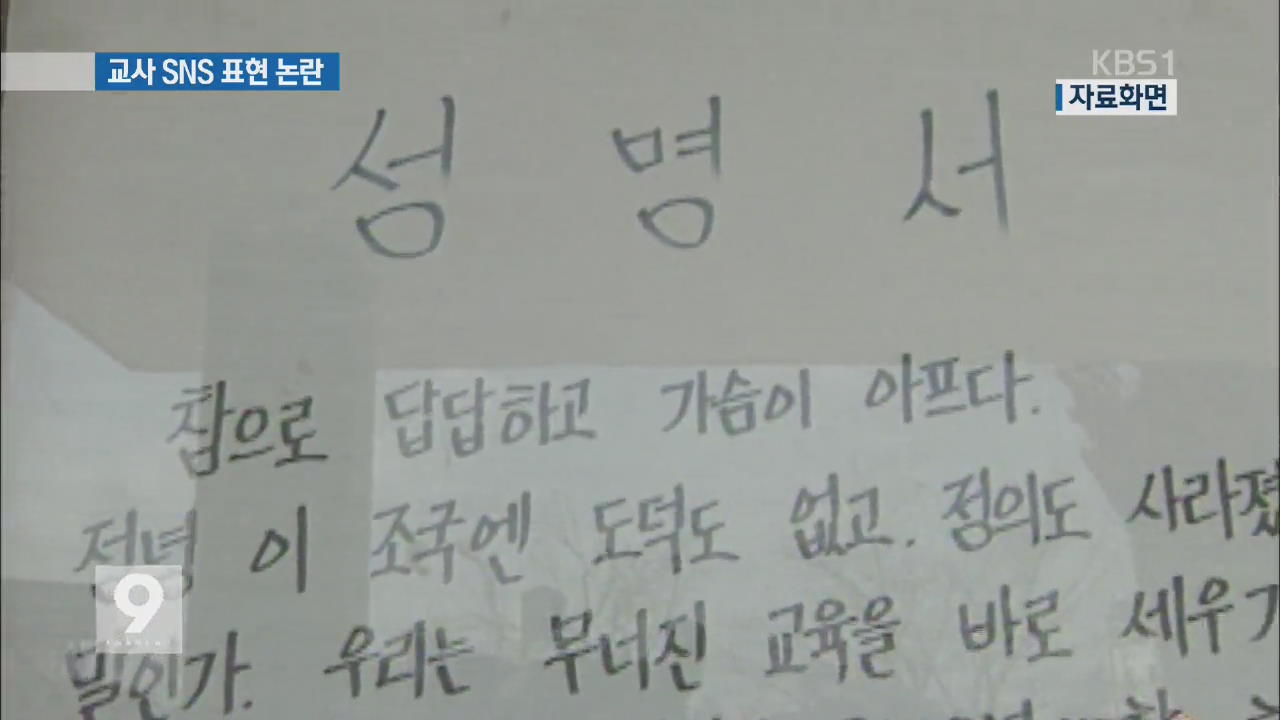 교사 SNS 표현 논란
KBS1
자료화면
성 명 서
참으로 답답하고 가슴이 아프다.
진녕 이 조국엔 도덕도 없고. 정의도 사라졌
말인가. 우리는 무너진 교육을 바로 세우기
9